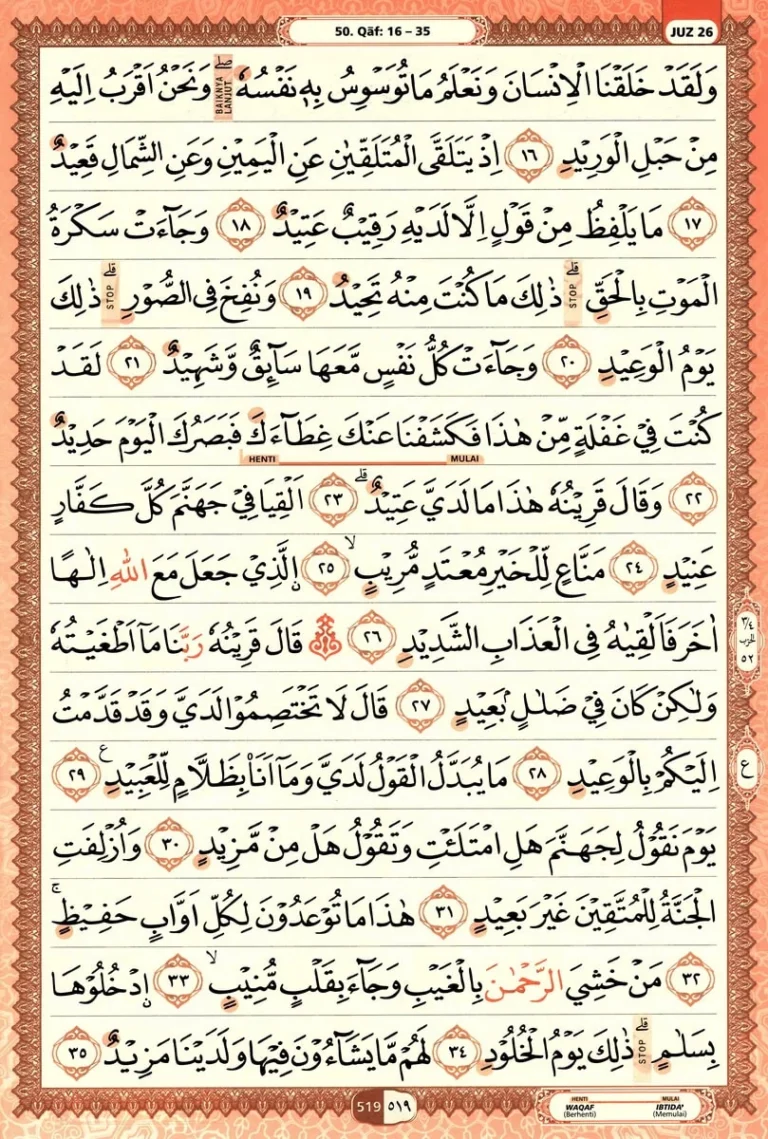 50. Qāf: 16 – 35
JUZ 26
وَلَقَدْ خَلَقْنَا الْاِنْسَانَ وَنَعْلَمُ مَا تُوَسْوِسُ بِهٖ نَفْسُهٗ ۖ وَنَحْنُ اَقْرَبُ اِلَيْهِ
BAIKNYA LANJUT
مِنْ حَبْلِ الْوَرِيْدِ ١٦ اِذْ يَتَلَقَّى الْمُتَلَقِّيٰنِ عَنِ الْيَمِيْنِ وَعَنِ الشِّمَالِ قَعِيْدٌ
١٧ مَا يَلْفِظُ مِنْ قَوْلٍ اِلَّا لَدَيْهِ رَقِيْبٌ عَتِيْدٌ ١٨ وَجَاۤءَتْ سَكْرَةُ
الْمَوْتِ بِالْحَقِّ ۗ STOP ذٰلِكَ مَا كُنْتَ مِنْهُ تَحِيْدُ ١٩ وَنُفِخَ فِى الصُّوْرِ ۗ STOP ذٰلِكَ
يَوْمُ الْوَعِيْدِ ٢٠ وَجَاۤءَتْ كُلُّ نَفْسٍ مَّعَهَا سَاۤىِٕقٌ وَّشَهِيْدٌ ٢١ لَقَدْ
كُنْتَ فِيْ غَفْلَةٍ مِّنْ هٰذَا فَكَشَفْنَا عَنْكَ غِطَاۤءَكَ فَبَصَرُكَ الْيَوْمَ حَدِيْدٌ
HENTI MULAI
٢٢ وَقَالَ قَرِيْنُهٗ هٰذَا مَا لَدَيَّ عَتِيْدٌ ۗ ٢٣ اَلْقِيَا فِيْ جَهَنَّمَ كُلَّ كَفَّارٍ
عَنِيْدٍ ٢٤ مَنَّاعٍ لِّلْخَيْرِ مُعْتَدٍ مُّرِيْبٍ ۙ ٢٥ ۨالَّذِيْ جَعَلَ مَعَ اللّٰهِ اِلٰهًا
اٰخَرَ فَاَلْقِيٰهُ فِى الْعَذَابِ الشَّدِيْدِ ٢٦ ۞ قَالَ قَرِيْنُهٗ رَبَّنَا مَآ اَطْغَيْتُهٗ
وَلٰكِنْ كَانَ فِيْ ضَلٰلٍۢ بَعِيْدٍ ٢٧ قَالَ لَا تَخْتَصِمُوْا لَدَيَّ وَقَدْ قَدَّمْتُ
اِلَيْكُمْ بِالْوَعِيْدِ ٢٨ مَا يُبَدَّلُ الْقَوْلُ لَدَيَّ وَمَآ اَنَا۠ بِظَلَّامٍ لِّلْعَبِيْدِ ع ٢٩
يَوْمَ نَقُوْلُ لِجَهَنَّمَ هَلِ امْتَلَـْٔتِ وَتَقُوْلُ هَلْ مِنْ مَّزِيْدٍ ٣٠ وَاُزْلِفَتِ
الْجَنَّةُ لِلْمُتَّقِيْنَ غَيْرَ بَعِيْدٍ ٣١ هٰذَا مَا تُوْعَدُوْنَ لِكُلِّ اَوَّابٍ حَفِيْظٍۚ
٣٢ مَنْ خَشِيَ الرَّحْمٰنَ بِالْغَيْبِ وَجَاۤءَ بِقَلْبٍ مُّنِيْبٍ ۙ ٣٣ ۨادْخُلُوْهَا
بِسَلٰمٍ ۗ STOP ذٰلِكَ يَوْمُ الْخُلُوْدِ ٣٤ لَهُمْ مَّا يَشَاۤءُوْنَ فِيْهَا وَلَدَيْنَا مَزِيْدٌ ٣٥
٣/٤
الحزب
٥٢
ع
519 ٥١٩
HENTI MULAI
WAQAF IBTIDA'
(Berhenti) (Memulai)